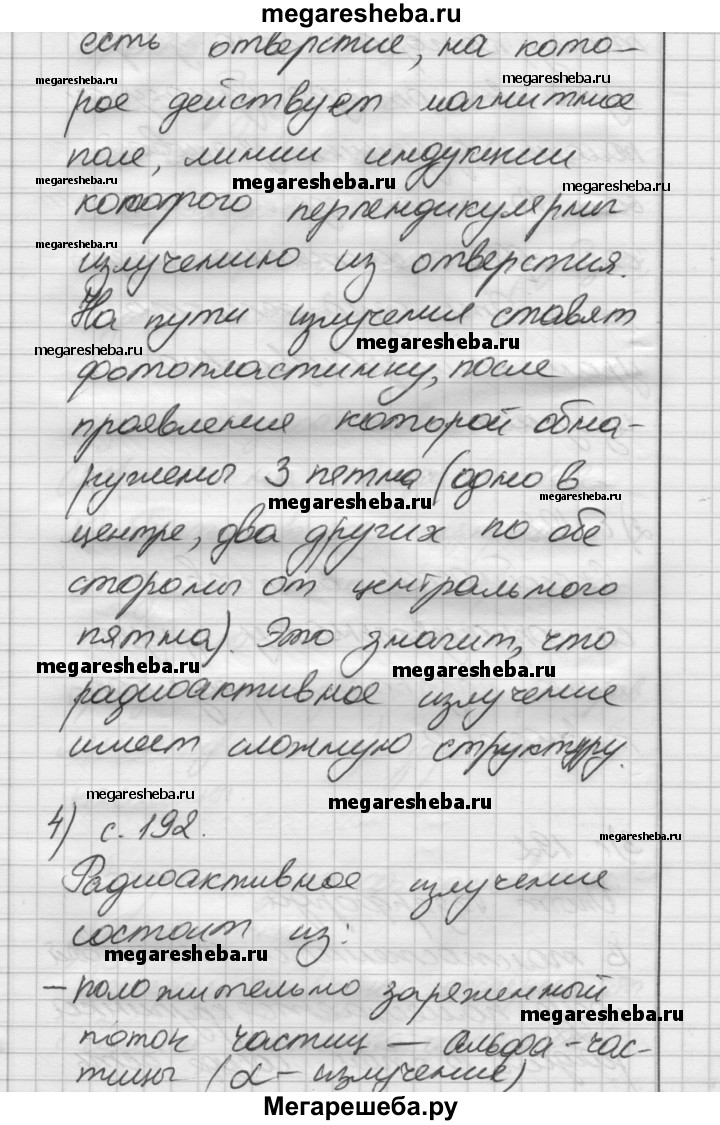 megaresheba.ru
есть отверстие, на кото-
megaresheba.ru
megaresheba.ru
рое действует магнитное
поле, линии индукции
megaresheba.ru
megaresheba.ru
megaresheba.ru
которого перпендикулярны
megaresheba.ru
излучению из отверстия.
На пути излучения ставят
megaresheba.ru
megaresheba.ru
фотопластинку, после
проявления которой обна-
ружены 3 пятна (одно в
megaresheba.ru
megaresheba.ru
центре, два других по обе
стороны от центрального
пятна). Это значит, что
megaresheba.ru
megaresheba.ru
радиоактивное излучение
имеет сложную структуру.
megaresheba.ru
megaresheba.ru
4) с. 192.
megaresheba.ru
Радиоактивное излучение
состоит из:
megaresheba.ru
– положительно заряженный
megaresheba.ru
поток частиц – альфа-час-
тицы (α – излучение)
Мегарешеба.ру